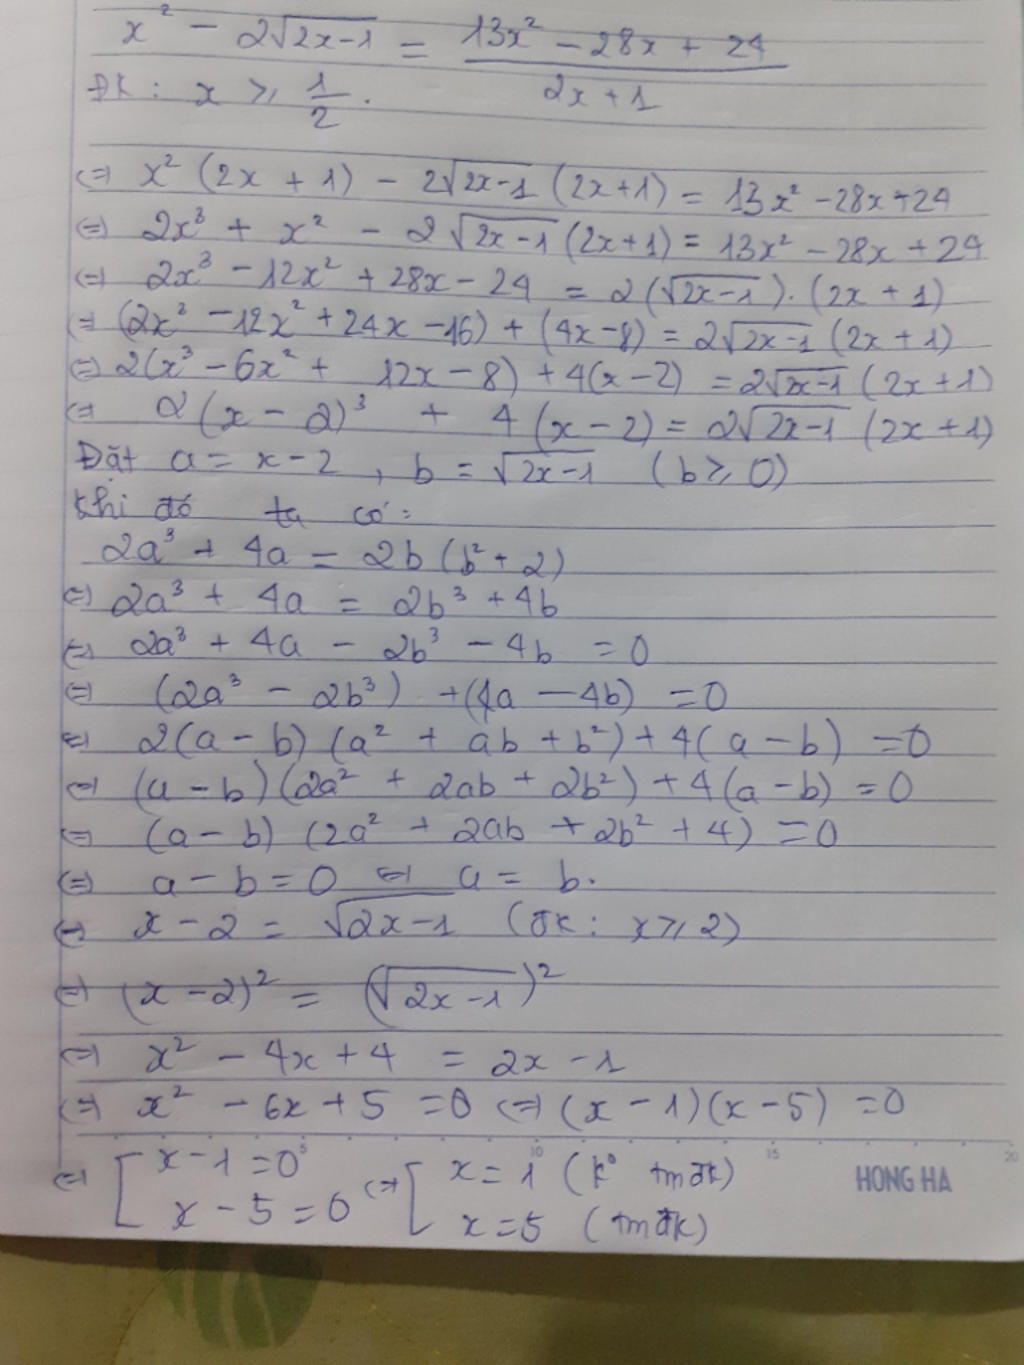 x² - 2√(2x-1) = (13x² - 28x + 24)/(2x + 1)
ĐK : x ⩾ 1/2 .
<=> x² (2x + 1) - 2√(2x-1) (2x+1) = 13x² - 28x + 24
<=> 2x³ + x² - 2√(2x-1) (2x+1) = 13x² - 28x + 24
<=> 2x³ - 12x² + 28x - 24 = 2(√(2x-1)) . (2x + 1)
<=> (2x³ - 12x² + 24x - 16) + (4x - 8) = 2√(2x-1) (2x + 1)
<=> 2(x³ - 6x² + 12x - 8) + 4(x - 2) = 2√(2x-1) (2x + 1)
<=> 2(x - 2)³ + 4(x - 2) = 2√(2x-1) (2x + 1)
Đặt a = x - 2 , b = √(2x-1) (b ⩾ 0)
Khi đó ta có :
2a³ + 4a = 2b (b² + 2)
<=> 2a³ + 4a = 2b³ + 4b
<=> 2a³ + 4a - 2b³ - 4b = 0
<=> (2a³ - 2b³) + (4a - 4b) = 0
<=> 2(a - b) (a² + ab + b²) + 4(a - b) = 0
<=> (a - b) (2a² + 2ab + 2b²) + 4(a - b) = 0
<=> (a - b) (2a² + 2ab + 2b² + 4) = 0
<=> a - b = 0 <=> a = b.
<=> x - 2 = √(2x-1) (ĐK : x ⩾ 2)
<=> (x - 2)² = (√(2x-1))²
<=> x² - 4x + 4 = 2x - 1
<=> x² - 6x + 5 = 0 <=> (x - 1)(x - 5) = 0
5 10 15 20
<=> [ x - 1 = 0 <=> [ x = 1 (k° tmđk)
x - 5 = 0 x = 5 (tmđk)
HONG HA